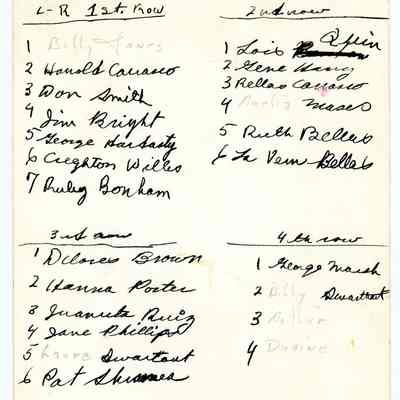 L-R 1st. row
1 Billy Jones
2 Harold Carrasco
3 Don Smith
4 Jim Bright
5 George Hardasty
6 Creghton Willis
7 Ruby Bonham
2nd row
1 Lois
2 Gene
3 Rellas Carrasco
4 Mases
5 Ruth Bellas
6 La Vern Bellas
3rd row
1 Delores Brown
2 Hanna Porter
3 Juanita Ruiz
4 Jane Phillips
5 Swartout
6 Pat Skinner
4th row
1 George Marsh
2 Billy Swarthout
3 Arthur
4